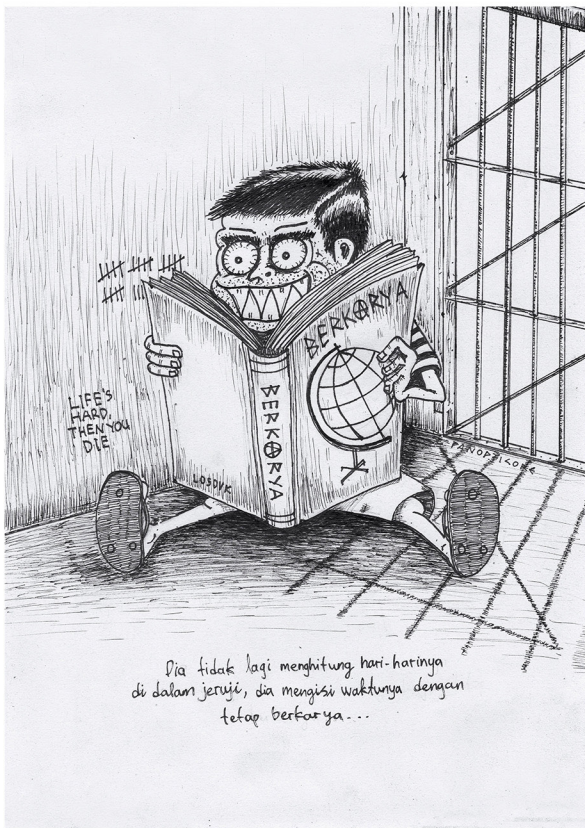 LIFE'S
HARD,
THEN YOU
DIE
BERKARYA
BERKARYA
LOSDVK
Dia tidak lagi menghitung hari-harinya
di dalam jeruji, dia mengisi waktunya dengan
tetap berkarya...